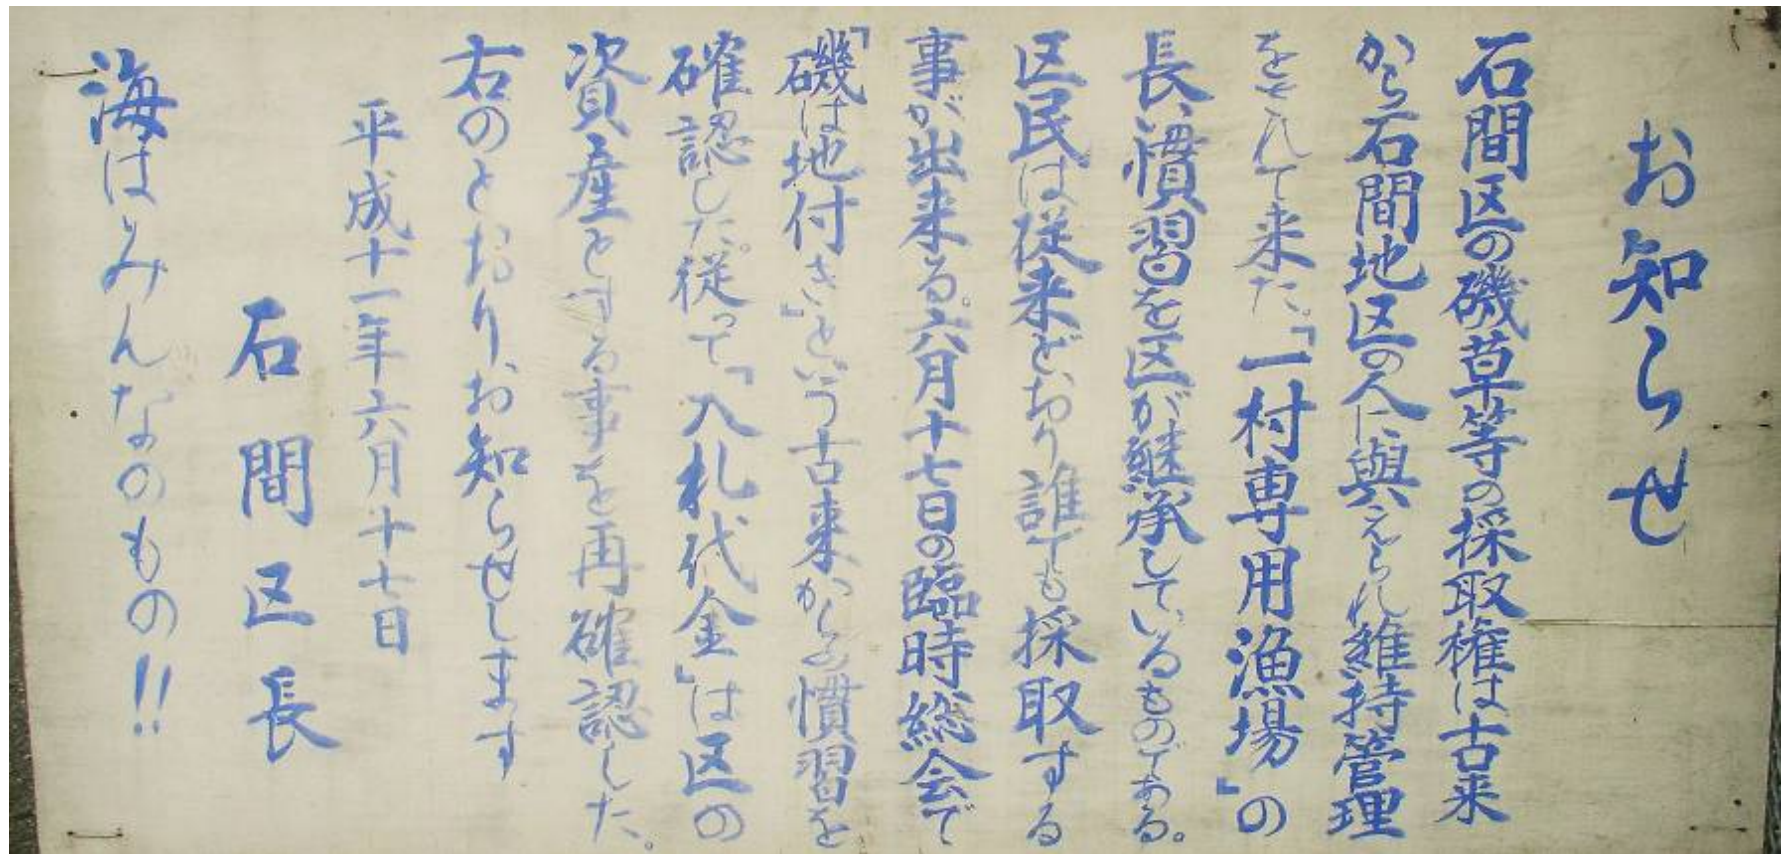 お知らせ
石間区の磯草等の採取権は古来
から石間地区の人に與えられ維持管理
をされて来た。「一村専用漁場」の
長い慣習を区が継承しているものである。
区民は従来どおり誰でも採取する
事が出来る。六月十七日の臨時総会で
「磯は地付き」という古来からの慣習を
確認した。従って「入札代金」は区の
資産とする事を再確認した。
右のとおりお知らせします
平成十一年六月十七日
石間区長
海はみんなのもの!!